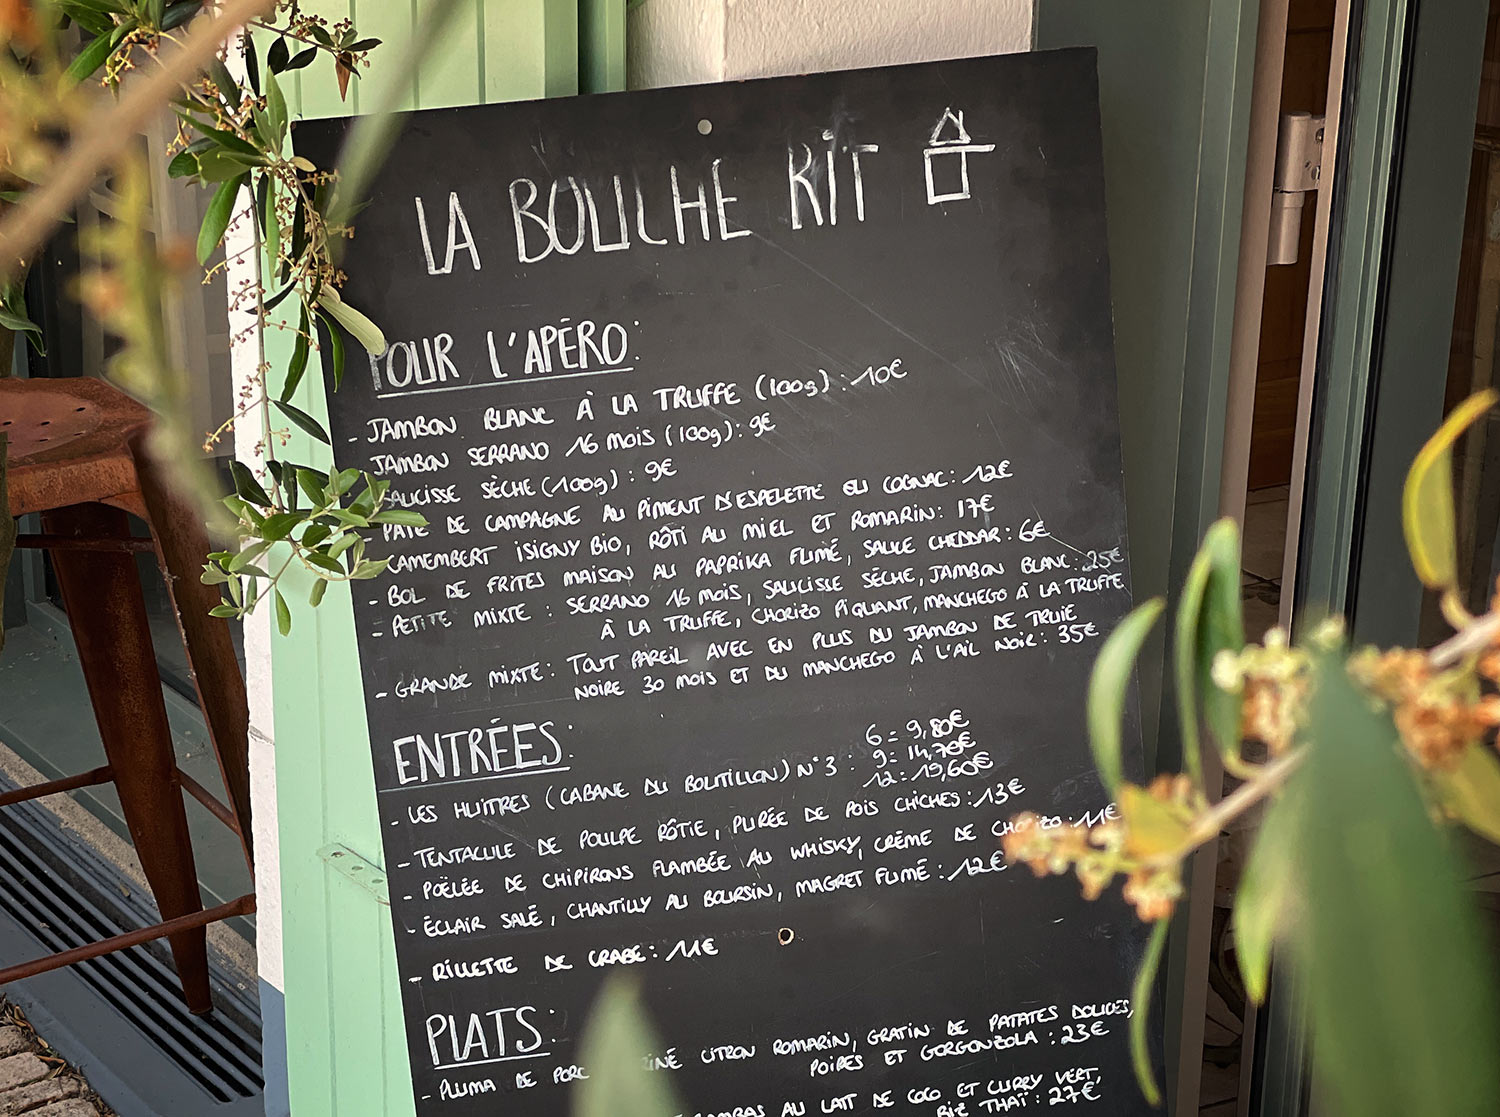 LA BOUCHE RIT
POUR L'APÉRO:
- JAMBON BLANC À LA TRUFFE (100g) : 10€
- JAMBON SERRANO 16 MOIS (100g) : 9€
SAUCISSE SÈCHE (100g) : 9€
- PATÉ DE CAMPAGNE AU PIMENT D'ESPELETTE OU COGNAC : 12€
- CAMEMBERT ISIGNY BIO, RÔTI AU MIEL ET ROMARIN : 17€
- BOL DE FRITES MAISON AU PAPRIKA FUMÉ, SAUCE CHEDDAR : 6€
- PETITE MIXTE : SERRANO 16 MOIS, SAUCISSE SÈCHE, JAMBON BLANC : 25€
À LA TRUFFE, CHORIZO PIQUANT, MANCHEGO À LA TRUFFE
- GRANDE MIXTE : TOUT PAREIL AVEC EN PLUS DU JAMBON DE TRUIE
NOIRE 30 MOIS ET DU MANCHEGO À L'AIL NOIR : 35€
ENTRÉES :
6 = 9,80€
- LES HUITRES (CABANE DU BOUTILLON) N°3 : 9 = 14,70€
12 = 19,60€
- TENTACULE DE POULPE RÔTIE, PURÉE DE POIS CHICHES : 13€
- POËLÉE DE CHIPIRONS FLAMBÉE AU WHISKY, CRÈME DE CHORIZO : 11€
- ÉCLAIR SALÉ, CHANTILLY AU BOURSIN, MAGRET FUMÉ : 12€
- RILLETTE DE CRABE : 11€
PLATS :
- PLUMA DE PORC CITRON ROMARIN, GRATIN DE PATATES DOUCES,
POIRES ET GORGONZOLA : 23€
AU LAIT DE COCO ET CURRY VERT,
RIZ THAÏ : 27€